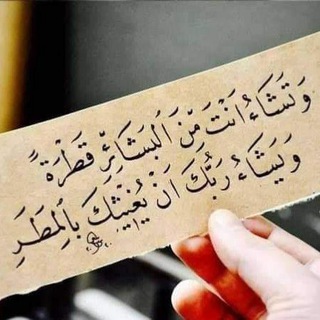 وَتَشَاءُ أَنْتَ مِنَ الْبَشَائِرِ قَطْرَةً
وَيَشَاءُ رَبُّكَ أَنْ يُغِيثَكَ بِالْمَطَرِ